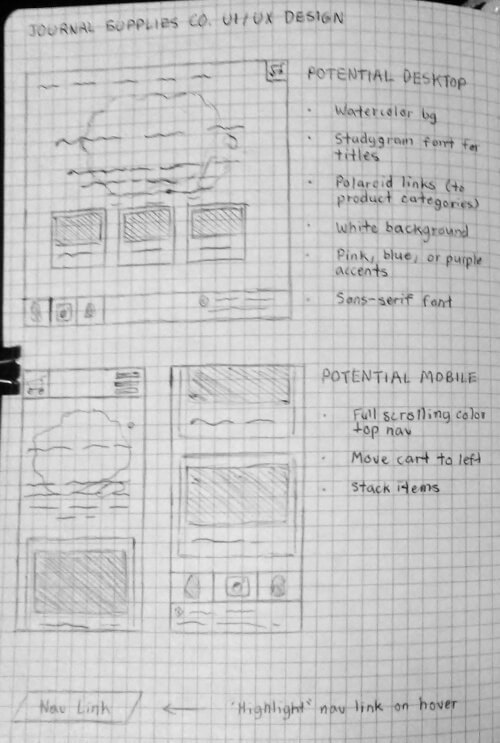 JOURNAL SUPPLIES CO. UI/UX DESIGN
POTENTIAL DESKTOP
· Watercolor bg
· Studygram font for
titles
· Polaroid links (to
product categories)
· White background
· Pink, blue, or purple
accents
· Sans-serif font
POTENTIAL MOBILE
· Full scrolling color
top nav
· Move cart to left
· Stack items
Nav Link ← "Highlight" nav link on hover